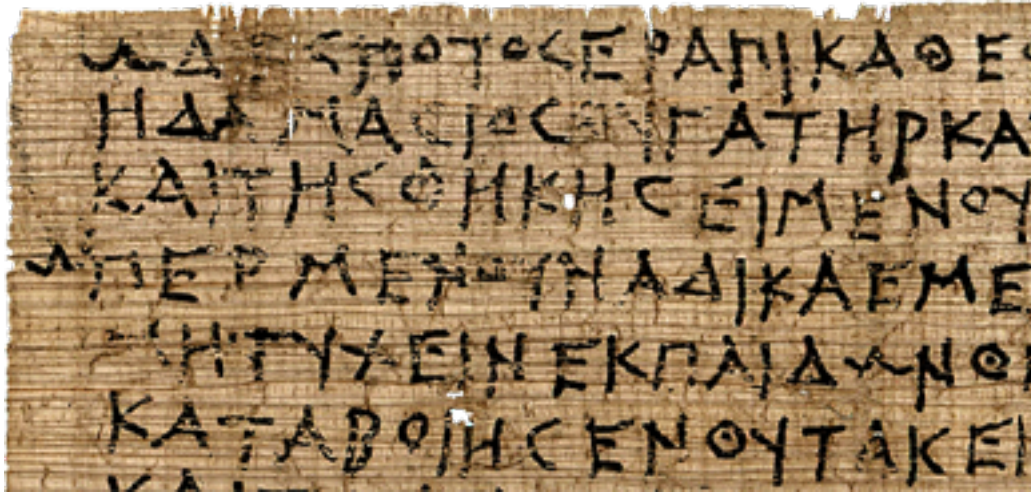 ΩΔΕΣΠΟΤΟΣΕΡΑΠΙΚΑΘΕΟ
ΗΔΑΜΑΣΙΟΣΘΥΓΑΤΗΡΚΑ
ΚΑΙΤΗΣΘΗΚΗΣΕΙΜΕΝΟΥ
ΩΠΕΡΜΕΝΟΥΝΑΔΙΚΑΕΜΕ
ΤΥΧΕΙΝΕΚΠΑΙΔΩΝΘ
ΚΑΤΑΒΟΙΗΣΕΝΟΥΤΑΚΕΙ